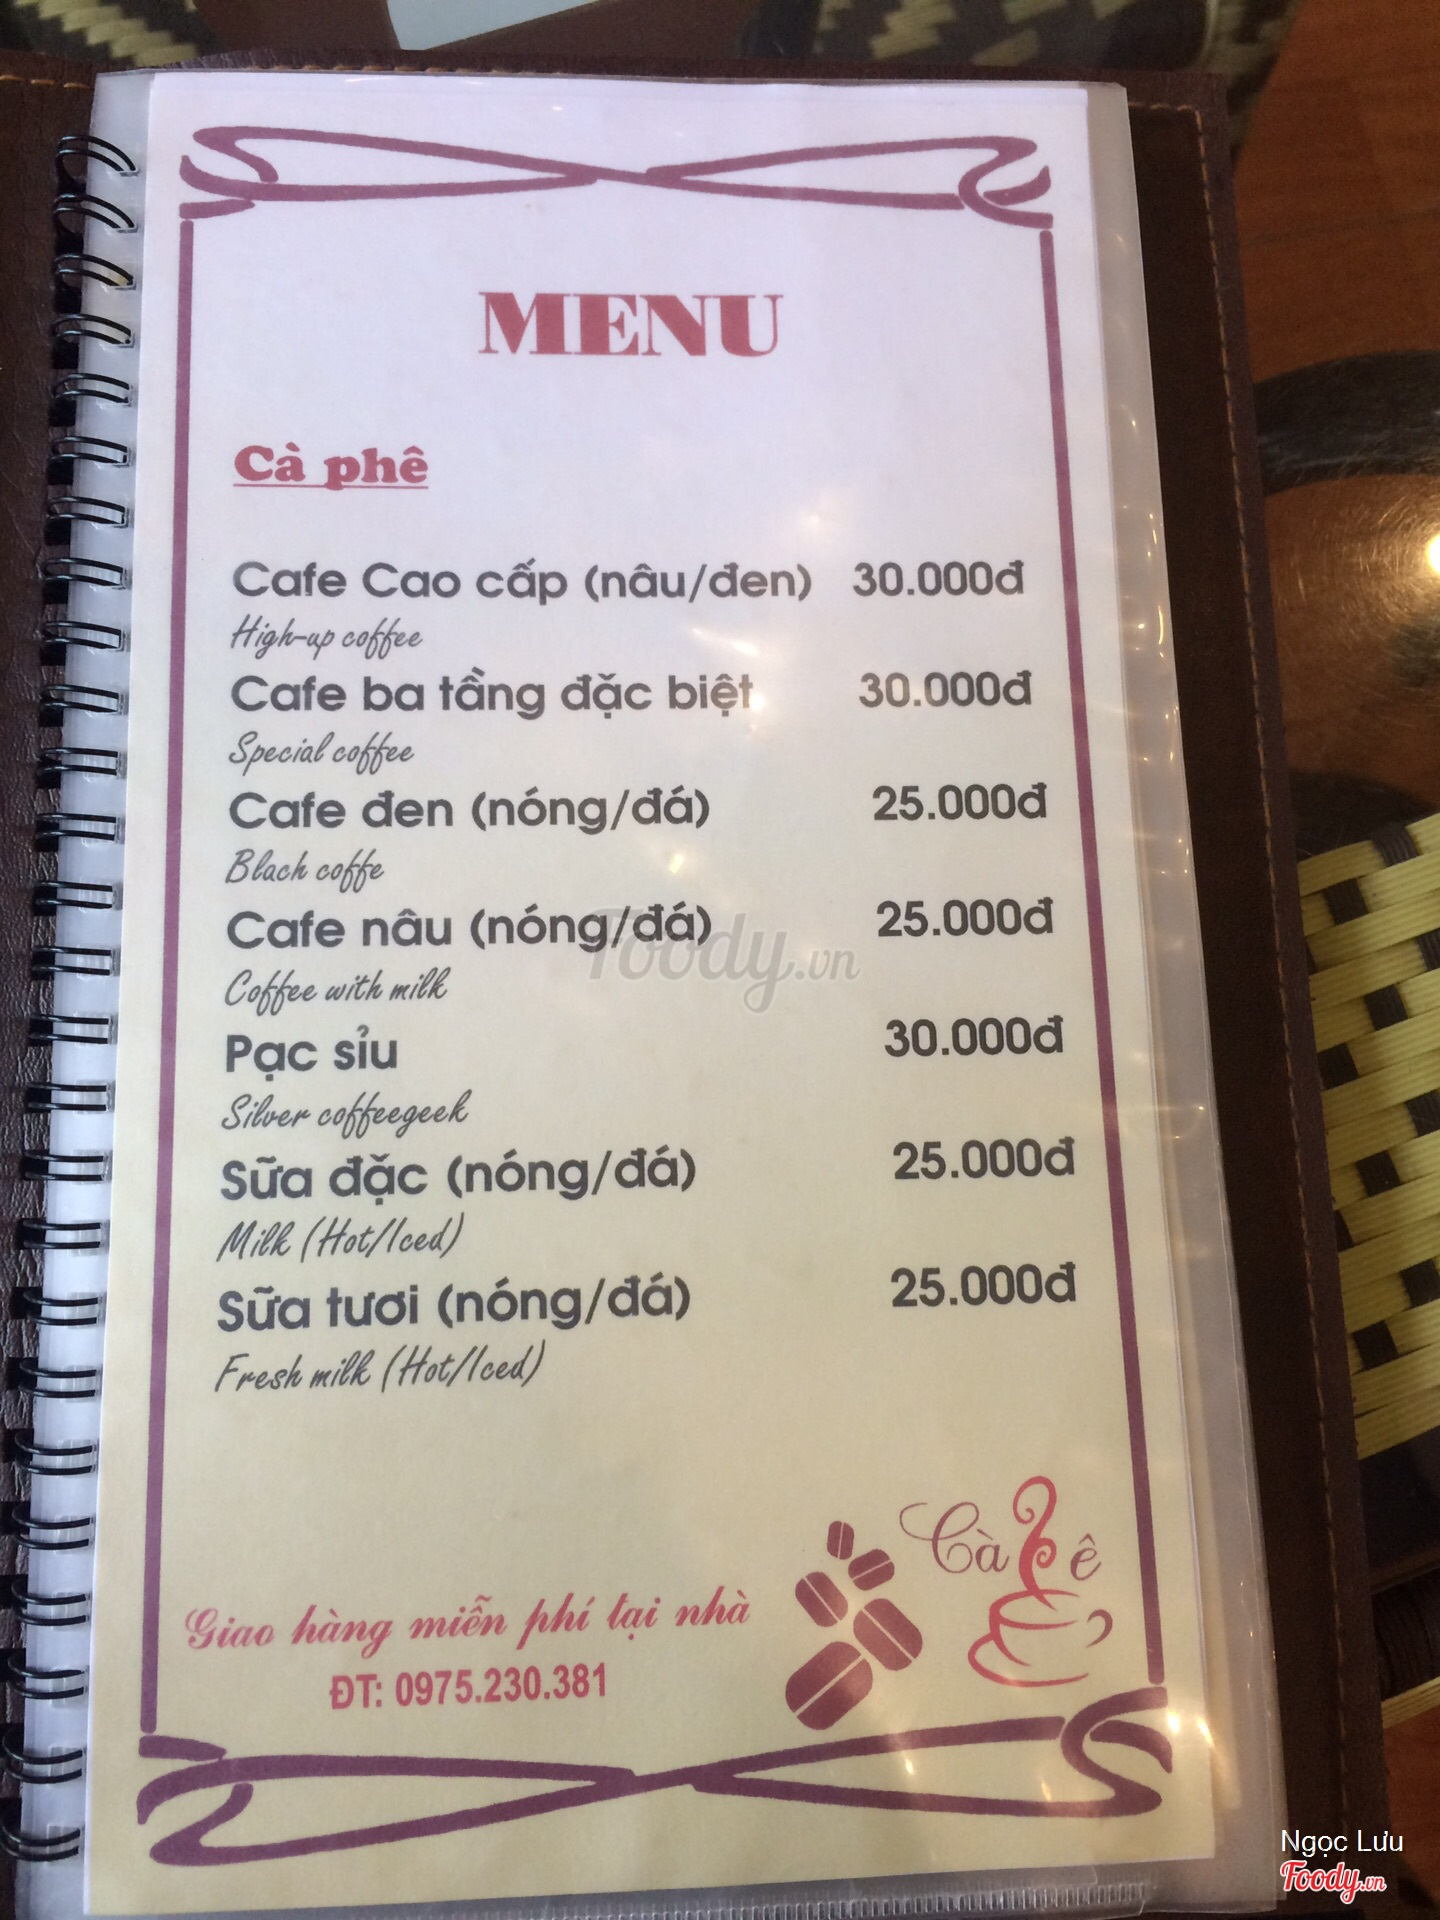 MENU
Cà phê
Cafe Cao cấp (nâu/đen) 30.000đ
High-up coffee
Cafe ba tầng đặc biệt 30.000đ
Special coffee
Cafe đen (nóng/đá) 25.000đ
Blach coffe
Cafe nâu (nóng/đá) 25.000đ
Coffee with milk
Foody.vn
Pạc sỉu 30.000đ
Silver coffeegeek
Sữa đặc (nóng/đá) 25.000đ
Milk (Hot/Iced)
Sữa tươi (nóng/đá) 25.000đ
Fresh milk (Hot/Iced)
Cà phê
Giao hàng miễn phí tại nhà
ĐT: 0975.230.381
Ngọc Lưu
Foody.vn